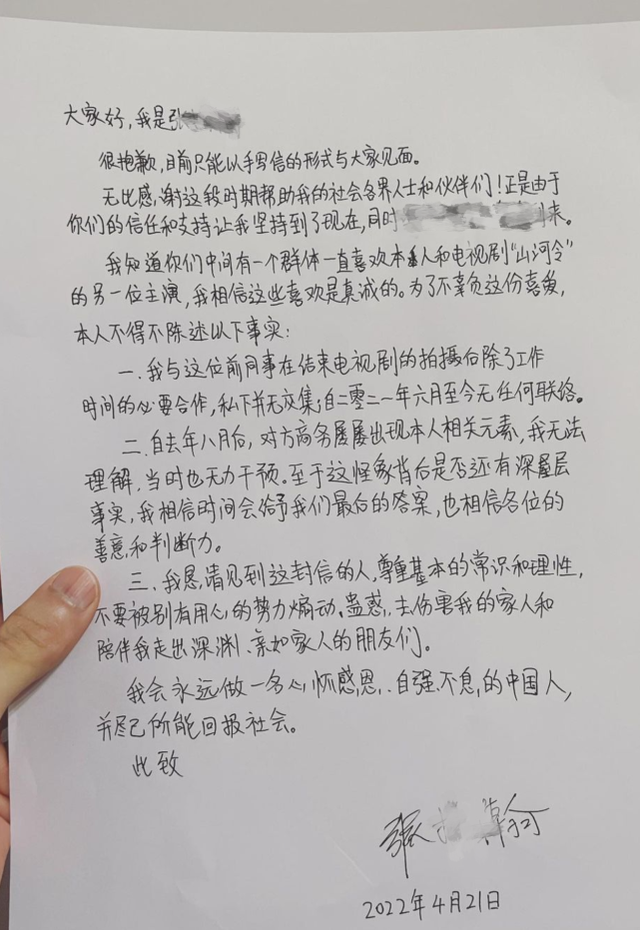 大家好，我是张
很抱歉，目前只能以手写信的形式与大家见面。
无比感谢这段时期帮助我的社会各界人士和伙伴们！正是由于
你们的信任和支持让我坚持到了现在，同时
来。
我知道你们中间有一个群体一直喜欢本人和电视剧“山河令”
的另一位主演，我相信这些喜欢是真诚的。为了不辜负这份喜爱，
本人不得不陈述以下事实：
一、我与这位前同事在结束电视剧的拍摄后除了工作
时间的必要合作，私下并无交集；自二零二一年六月至今无任何联络。
二、自去年八月后，对方商务屡屡出现本人相关元素，我无法
理解、当时也无力干预。至于这怪象背后是否还有深层
事实，我相信时间会给予我们最后的答案，也相信各位的
善意和判断力。
三、我恳请见到这封信的人，尊重基本的常识和理性，
不要被别有用心的势力煽动、蛊惑、去伤害我的家人和
陪伴我走出深渊、亲如家人的朋友们。
我会永远做一名心怀感恩、自强不息的中国人，
并尽已所能回报社会。
此致
张 翰
2022年4月21日